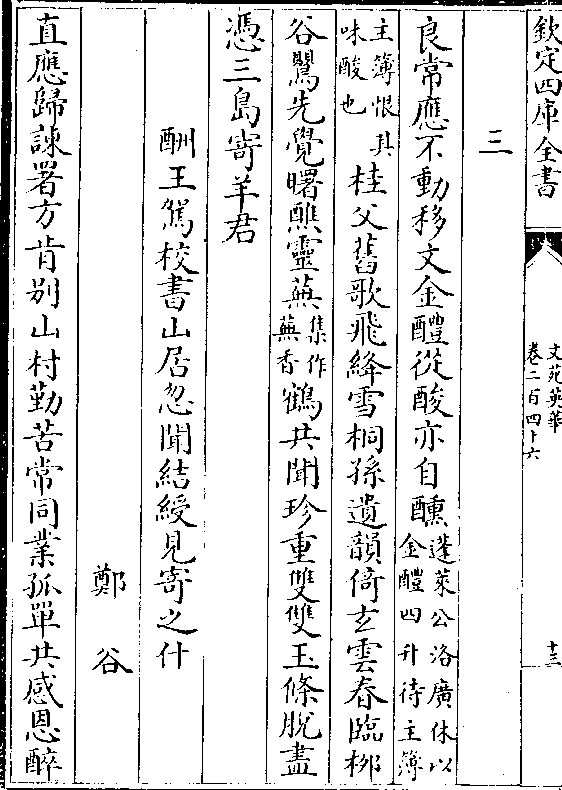 欽定四庫全書
文苑英華
卷二百四十六
十三
三
良常應不動移文金醴從酸亦自醺蓬萊公洛廣休以金醴四升待主簿
主簿恨其味酸也桂父舊歌飛絳雪桐孫遺韻倚玄雲春臨栁
谷鸎先覺曙醮靈蕪集作蕪香鶴共聞珍重雙雙玉條脫盡
憑三島寄羊君
酬王駕校書山居忽聞結綬見寄之什
鄭谷
直應歸諫署方肯别山村勤苦常同業孤單共感恩醉